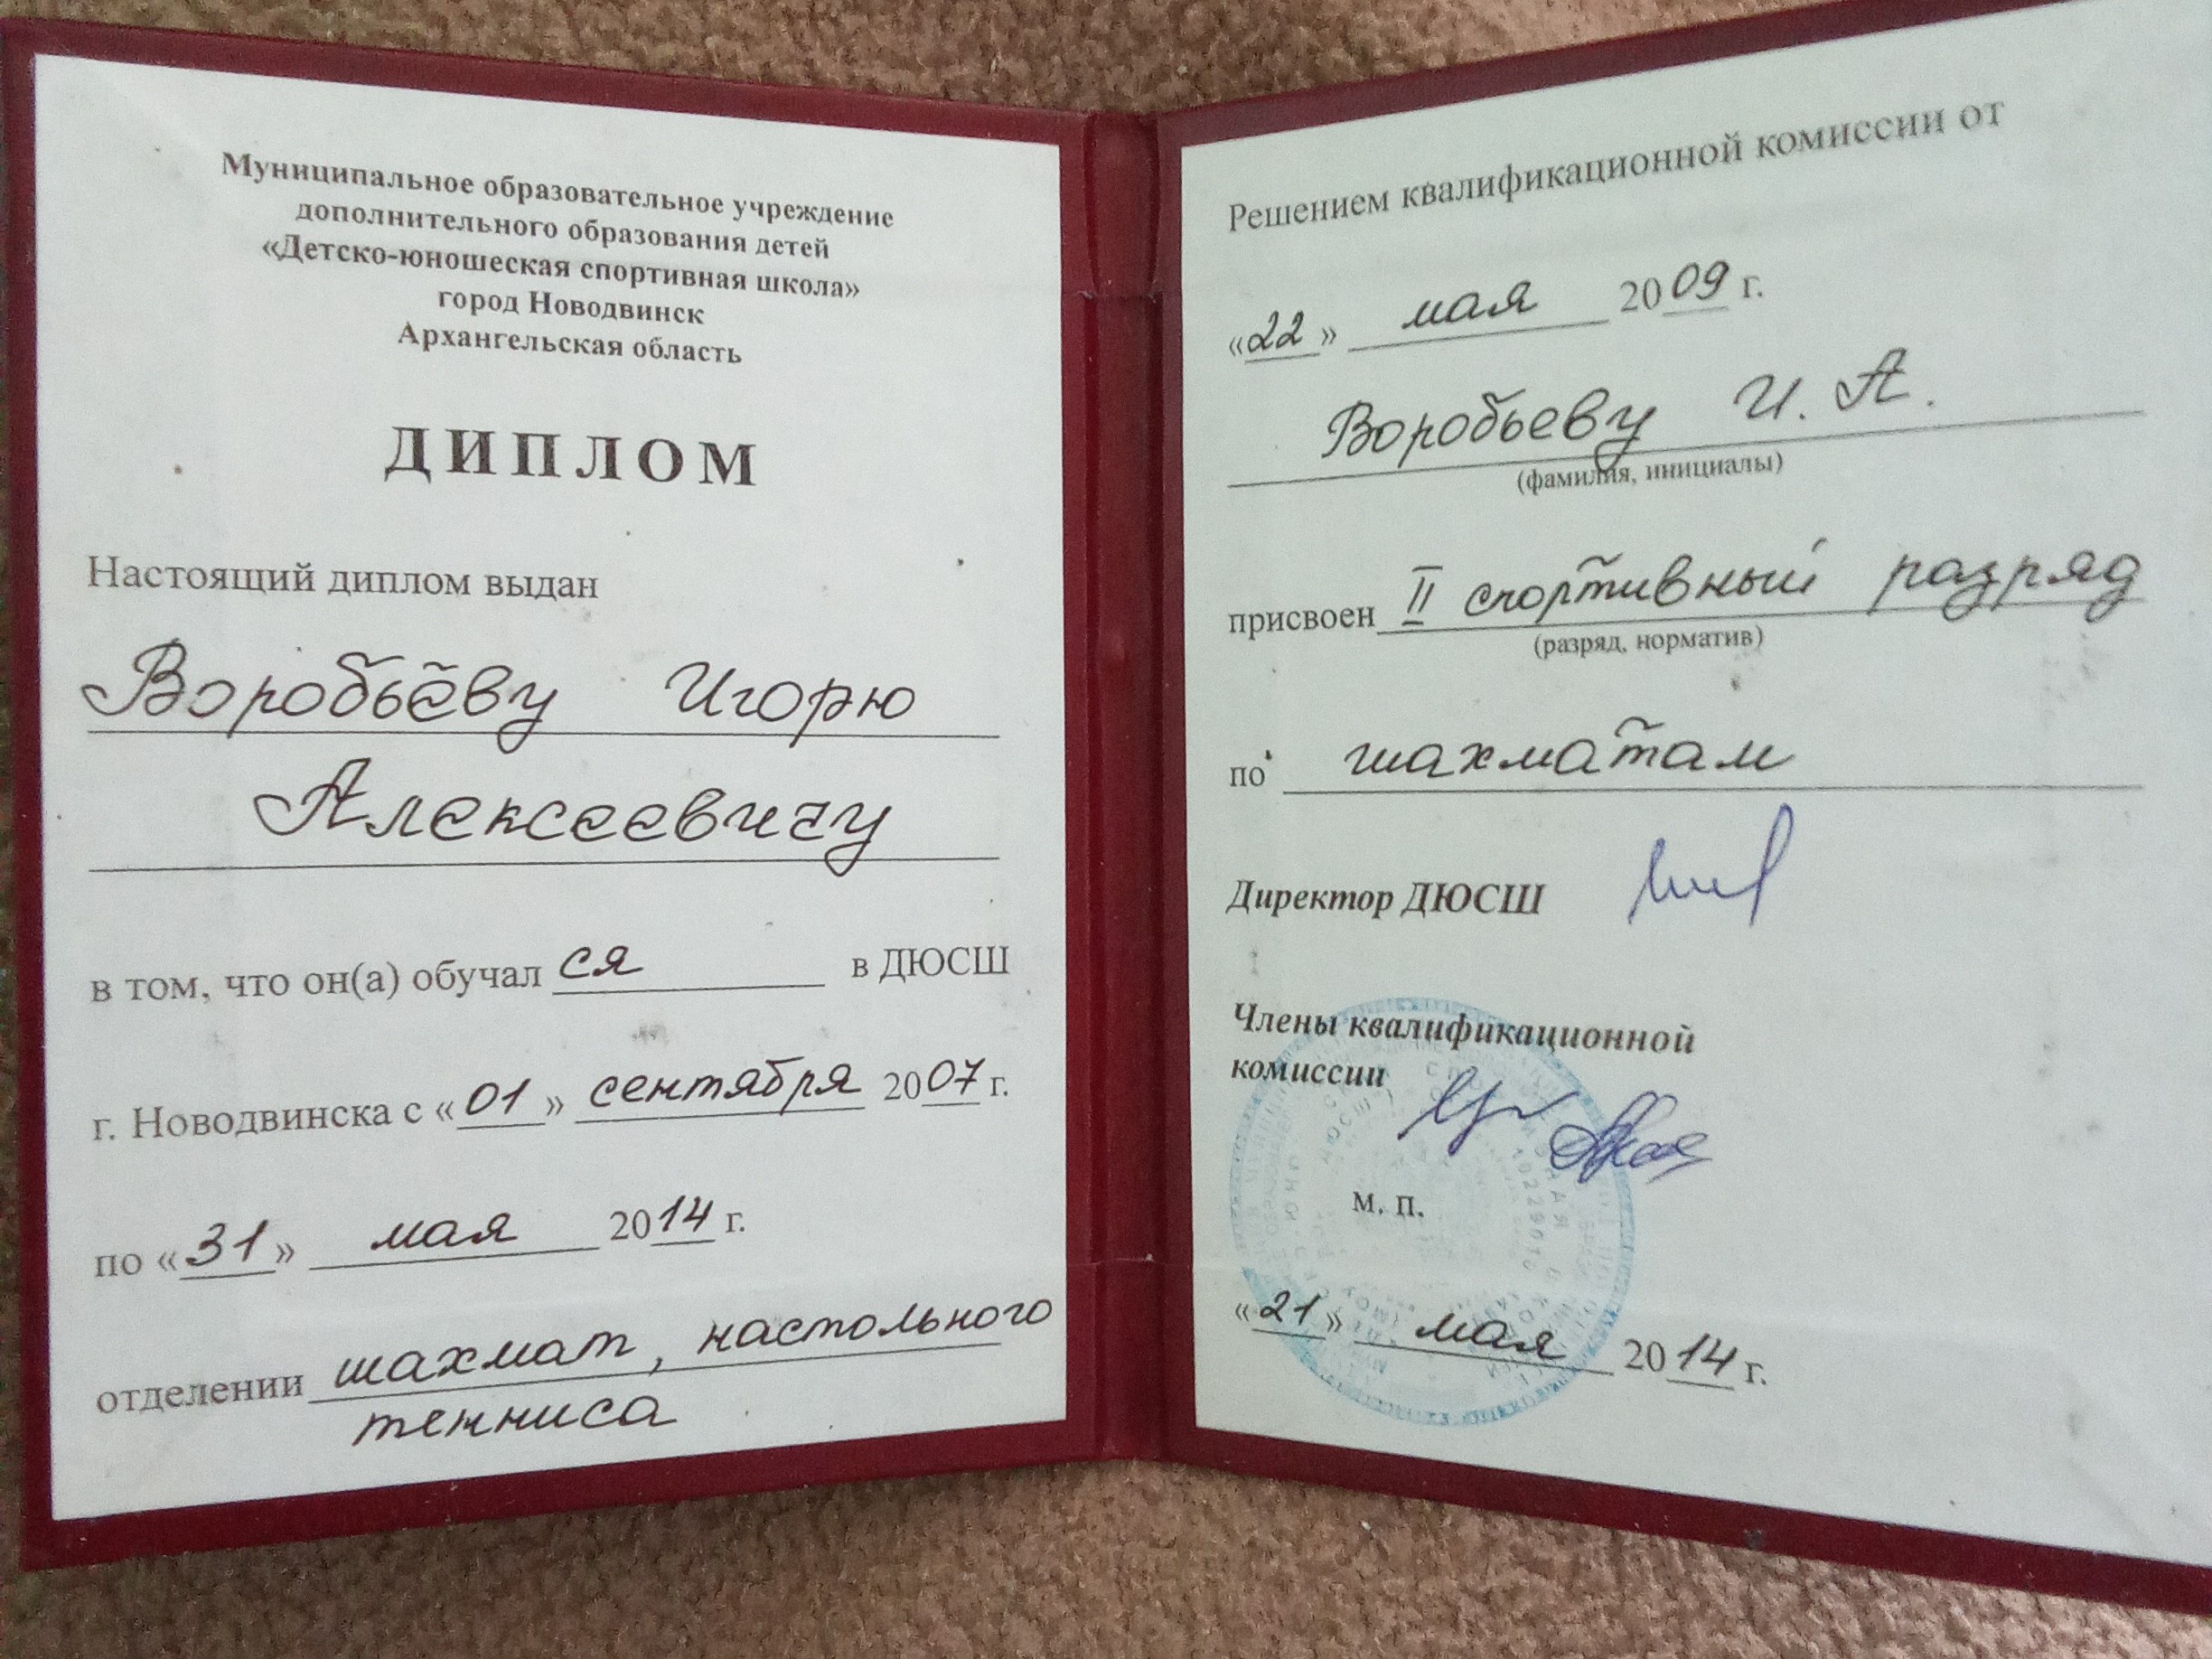 Муниципальное образовательное учреждение
дополнительного образования детей
«Детско-юношеская спортивная школа»
город Новодвинск
Архангельская область
ДИПЛОМ
Настоящий диплом выдан
Воробьёву Игорю
Алексеевичу
в том, что он(а) обучал ся в ДЮСШ
г. Новодвинска с «01» сентября 2007 г.
по «31» мая 2014 г.
отделении шахмат, настольного
тенниса
Решением квалификационной комиссии от
«22» мая 2009 г.
Воробьеву И. А.
(фамилия, инициалы)
присвоен II спортивный разряд
(разряд, норматив)
по шахматам
Директор ДЮСШ
Члены квалификационной
комиссии
М. П.
«21» мая 2014 г.